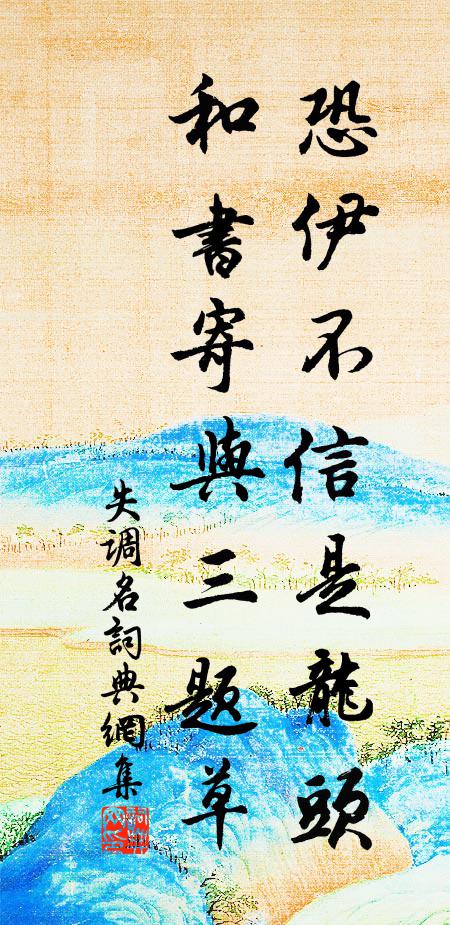 恐伊不信是龍頭
和書寄與三題草
失調名詞典網集